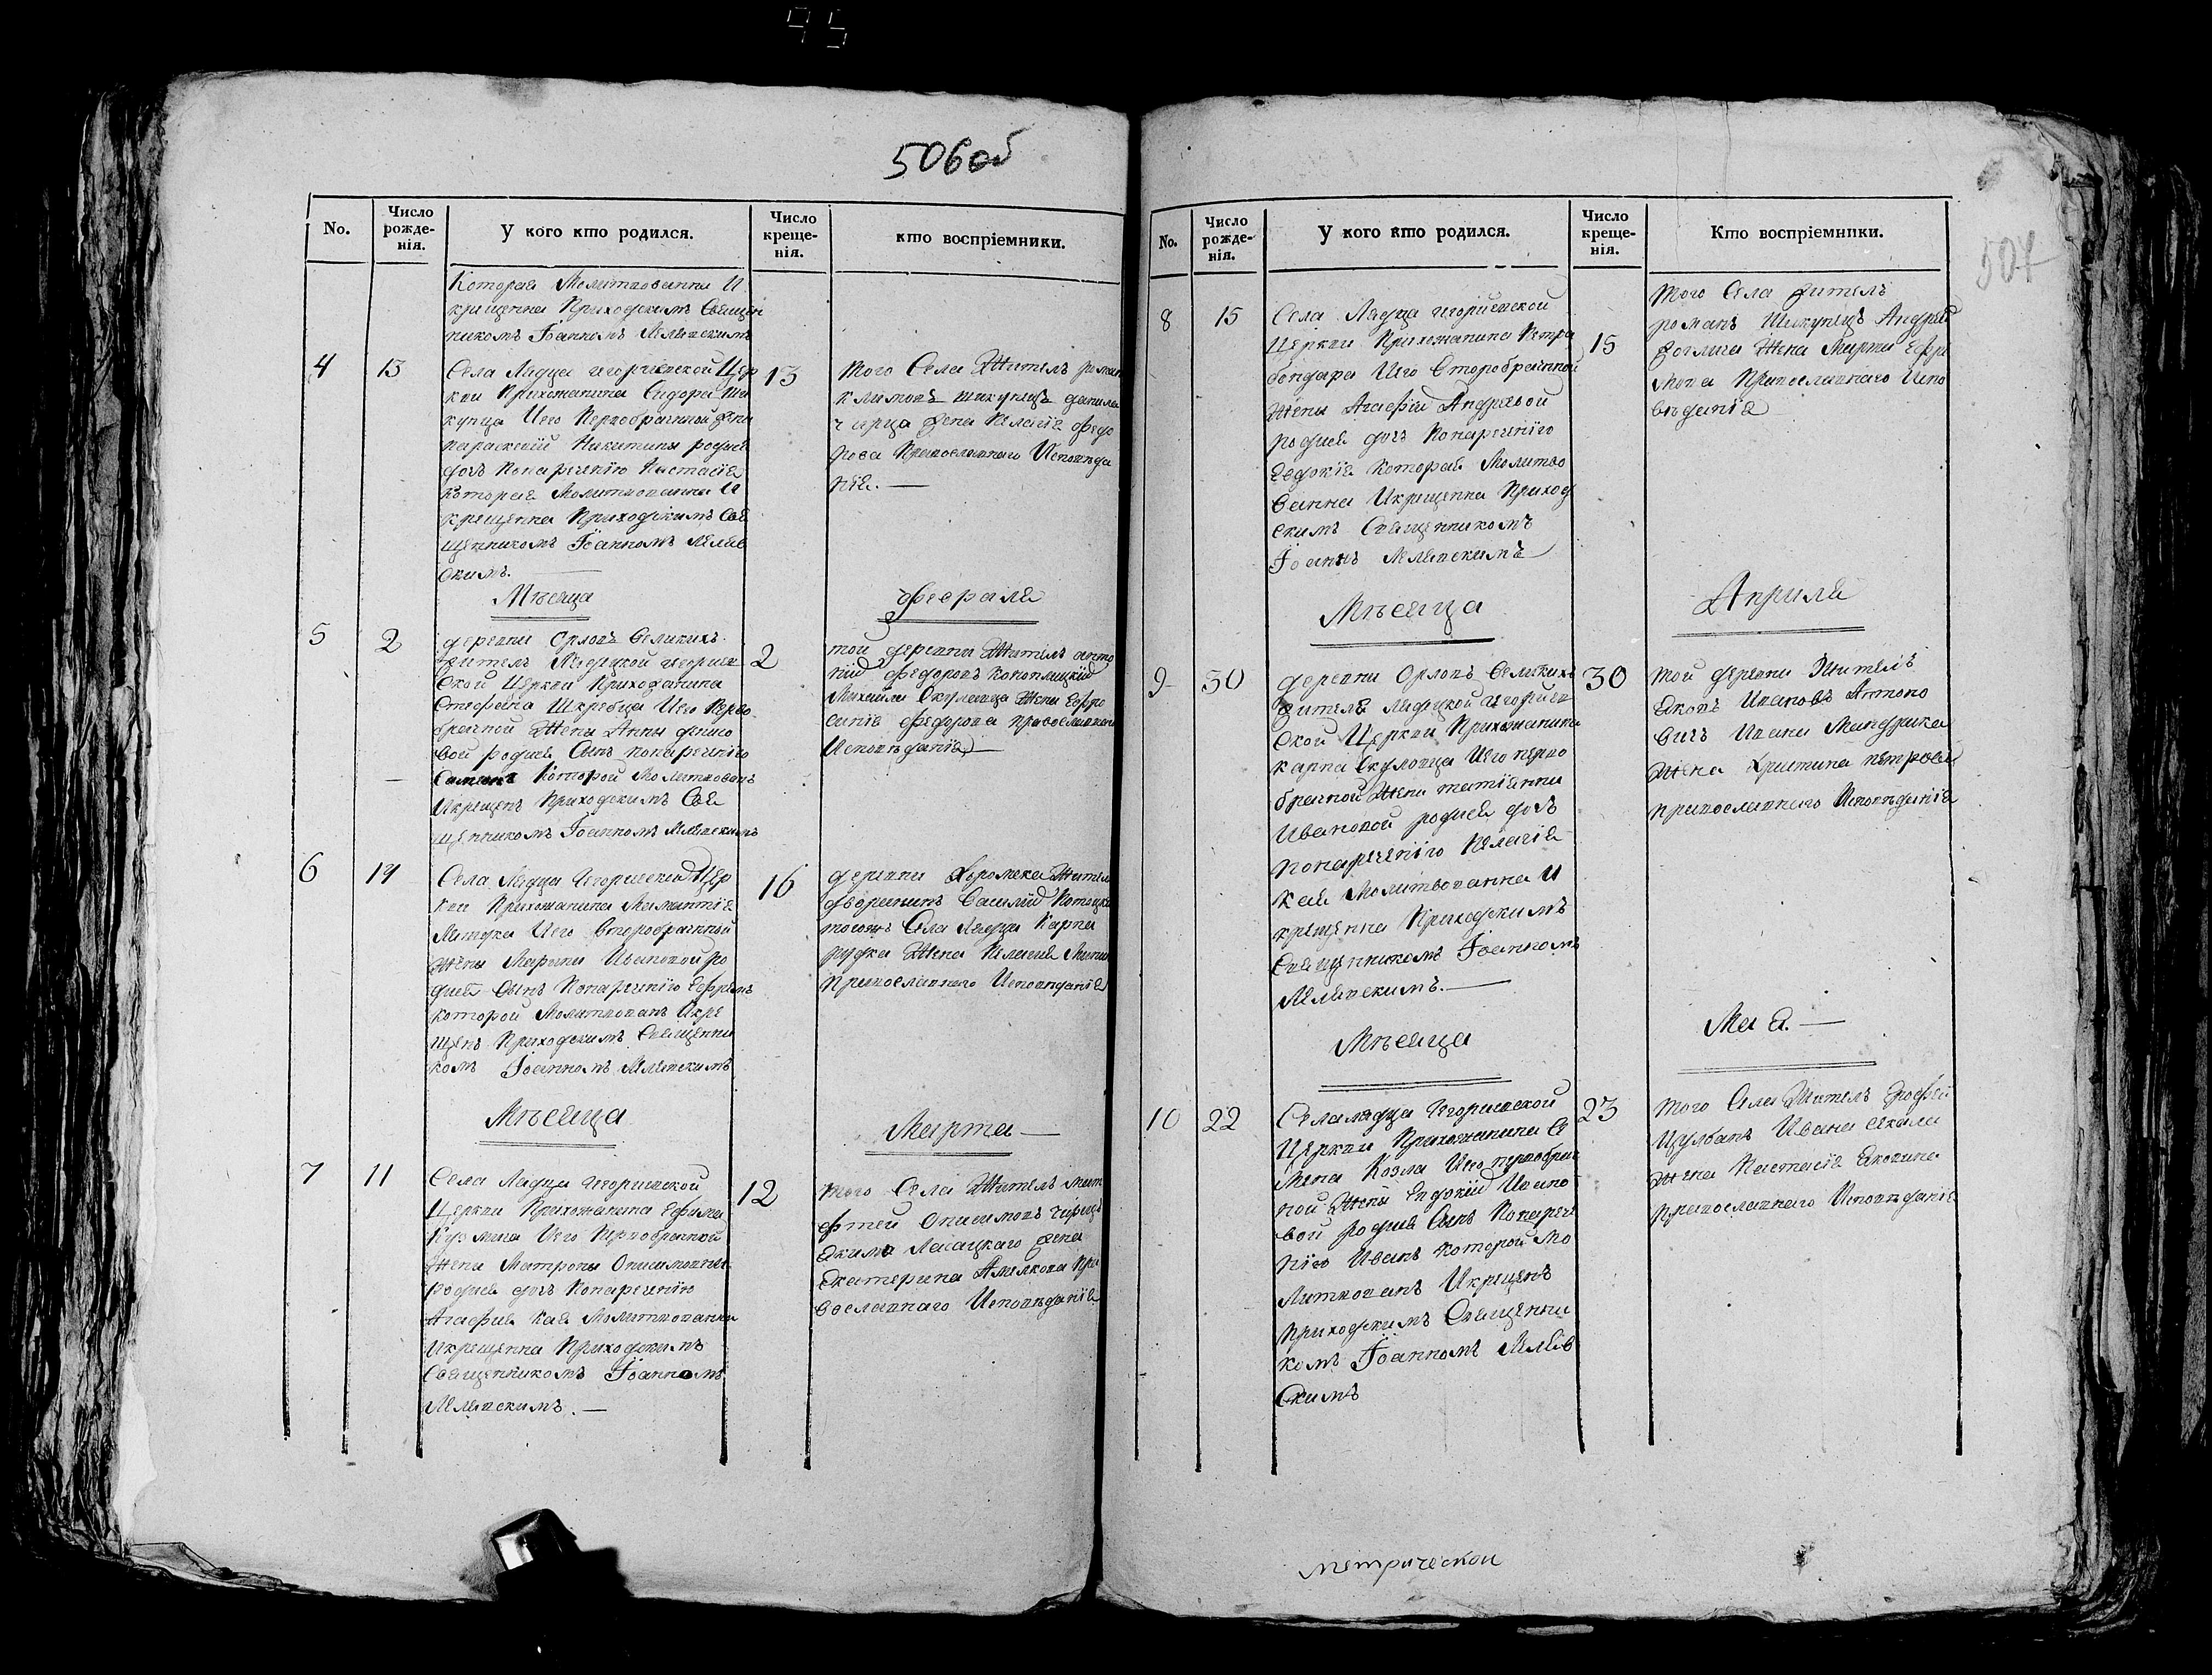 506 об
No.
Число рожде- нія.
У кого кто родился.
Число креще- нія.
кто воспріемники.
Которая Молитвованна И
крищенна Приходскимъ Священ
никомъ Іоанномъ
4 13 Села Лядца Игоргіевской Цер 13
кви Прихожанина Сидора Ши
купца Иго Первобрачной жены
параскевіи Никитины родися
дочь Понаречнію Настасія
которая Молитвованна И
крещенна Приходскимъ Свя
щенникомъ Іоанномъ
скимъ.
того Села Житель роман
климовъ шикупецъ данила
жена Пелагія федо
рова Православнаго Исповѣда
нія.
Мѣсяца Февраля
5 2 деревни Орловъ Великихъ 2
житель Лядецкой георгіев
ской Церкви Прихожанина
Стефана Шкребца Иго Перво
брачной Жены Анны
вой родися Сынъ понаречніго
которой Молитвованъ
Икрещенъ Приходскимъ Свя
щенникомъ Іоанномъ
той деревни Житель анто
ній федоровъ
Михайла Жена Ефро
синія федорова православнаго
Исповѣданія
6 14 Села Лядца Игоргіевской Цер 16
кви Прихожанина
Иго Второбрачной
Жены Марины Ивановой ро
дися Сынъ Понаречніго Ефремъ
которой Молитвованъ Икре
щенъ Приходскимъ Священни
комъ Іоанномъ
деревни Хоромска Житель
дворянинъ Василій
Села Лядца Карпа
рудка Жена Пелагія
Православнаго Исповѣданія
Мѣсяца Марта
7 11 Села Лядца Игоргіевской 12
Церкви Прихожанина Ефима
Кузмича Иго Первобрачной
Жены Матроны
Родися дочь Понаречнію
Агафія Кая Молитвованна
Икрещенна Приходскимъ
Священникомъ Іоанномъ
того Села Житель мат
фтей
Екима жена
Екатерина Пра
вославнаго Исповѣданія
507
No.
Число рожде- нія.
У кого кто родился.
Число креще- нія.
Кто воспріемники.
8 15 Села Лядца игоргіевской 15
Церкви Прихожанина Петра
бондара Иго Второбрачной
Жены Агафіи Андреевой
родися дочь Понаречніго
Евдокія Которая Молитво
ванна Икрещенна Приход
скимъ Священникомъ
Іоанъ
того Села житель
романъ Шикупецъ Андрея
жена Марта Ефи
мова Православнаго Испо
вѣданія
Мѣсяца Априля
9 30 деревни Орловъ Великихъ 30
жителя лядецкой игоргіев
ской Церкви Прихожанина
карпа Иго перво
брачной Жены татіянны
Ивановой родися дочъ
понареченіго Пелагія
кая Молитвованна И
крещенна Приходскимъ
Священникомъ Іоанномъ
той деревни Житель
Яковъ Ивановъ Антоно
вичъ Ивана Мандрика
Жена Христина петрова
православнаго Исповѣданія
Мѣсяца Мая.
10 22 Села лядца Игоргіевской 23
Церкви Прихожанина Се
мена Козла Иго первобрач
ной Жены Евдокіи Ивано
вой Родися Сынъ Понареч
нію Иванъ которой Мо
литвованъ Икрещенъ
приходскимъ Священни
комъ Іоанномъ
скимъ
того Села Житель
Ивана
Жена Настасія Яковина
православнаго Исповѣданія
метрической